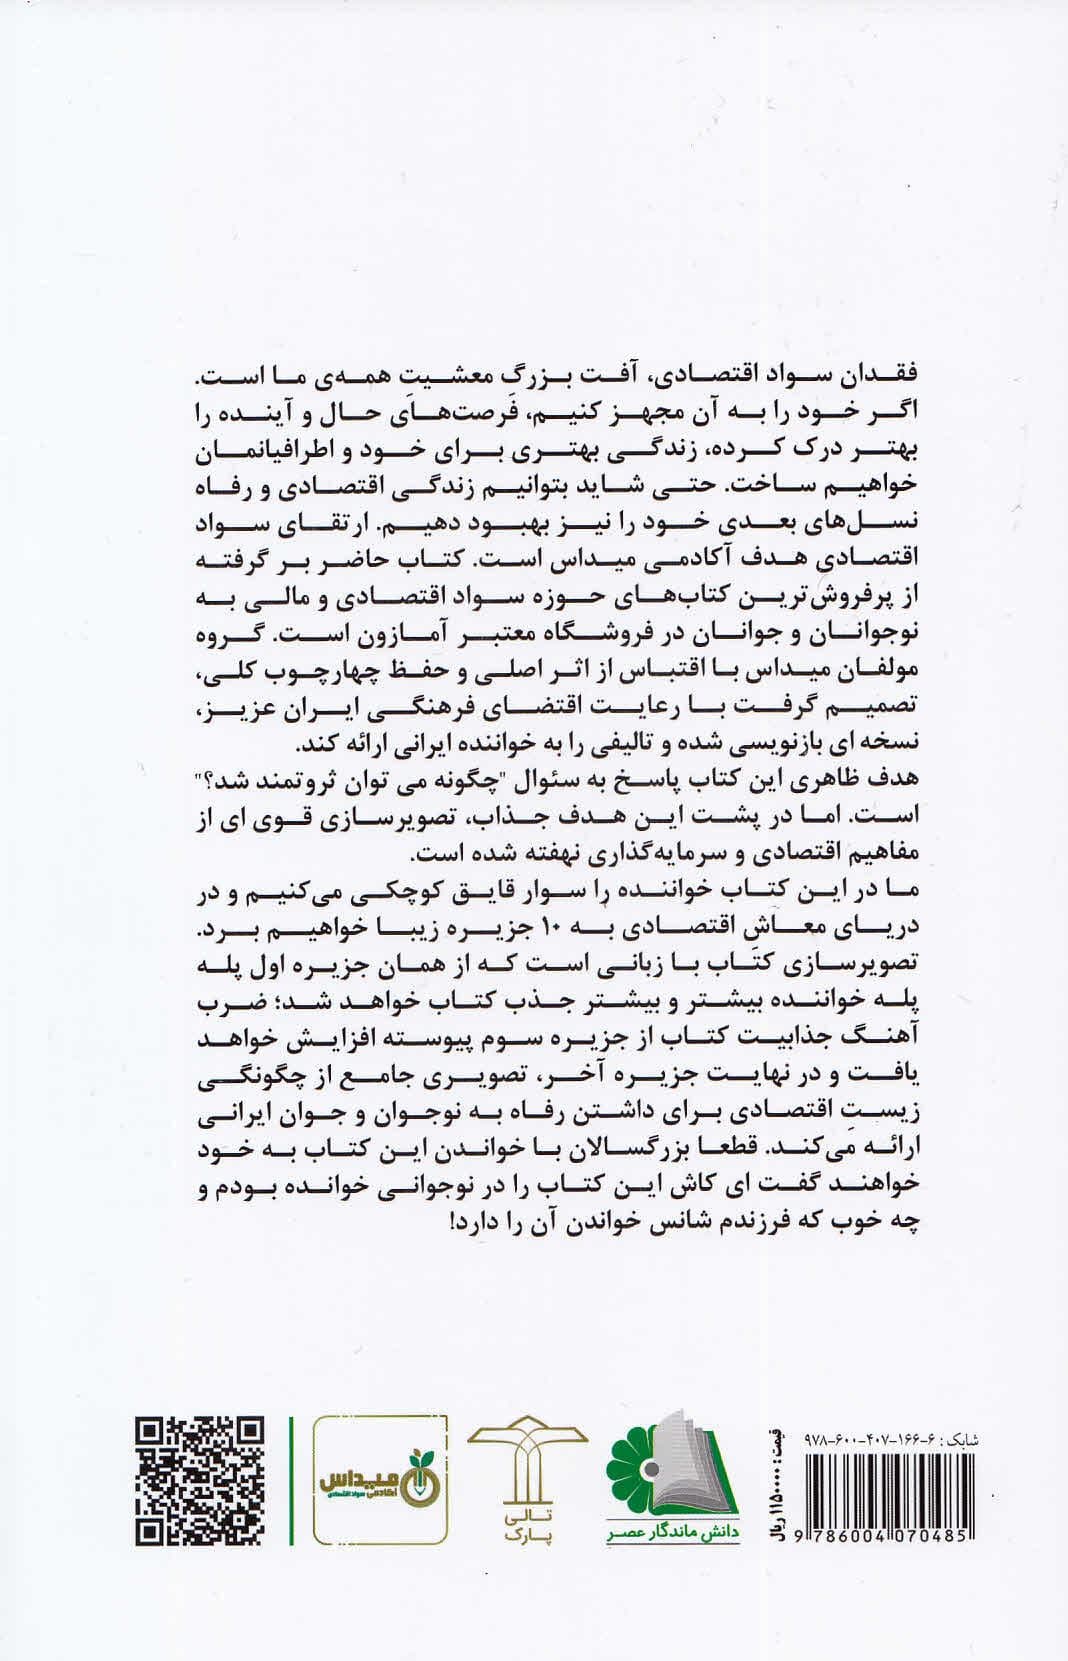 فقدان سواد اقتصادی، آفت بزرگِ معشیتِ همه‌ی ما است.
اگر خود را به آن مجهز کنیم، فرصت‌های حال و آینده را
بهتر درک کرده، زندگی بهتری برای خود و اطرافیانمان
خواهیم ساخت. حتی شاید بتوانیم زندگی اقتصادی و رفاه
نسل‌های بعدی خود را نیز بهبود دهیم. ارتقای سواد
اقتصادی هدف آکادمی میداس است. کتاب حاضر بر گرفته
از پرفروش‌ترین کتاب‌های حوزه سواد اقتصادی و مالی به
نوجوانان و جوانان در فروشگاه معتبر آمازون است. گروه
مولفان میداس با اقتباس از اثر اصلی و حفظ چهارچوب کلی،
تصمیم گرفت با رعایت اقتضای فرهنگی ایران عزیز،
نسخه ای بازنویسی شده و تالیفی را به خواننده ایرانی ارائه کند.
هدف ظاهری این کتاب پاسخ به سئوال "چگونه می توان ثروتمند شد؟"
است. اما در پشت این هدف جذاب، تصویرسازی قوی ای از
مفاهیم اقتصادی و سرمایه‌گذاری نهفته شده است.
ما در این کتاب خواننده را سوار قایق کوچکی می‌کنیم و در
دریای معاشِ اقتصادی به ۱۰ جزیره زیبا خواهیم برد.
تصویرسازی کتاب با زبانی است که از همان جزیره اول پله
پله خواننده بیشتر و بیشتر جذب کتاب خواهد شد؛ ضرب
آهنگ جذابیت کتاب از جزیره سوم پیوسته افزایش خواهد
یافت و در نهایت جزیره آخر، تصویری جامع از چگونگی
زیستِ اقتصادی برای داشتن رفاه به نوجوان و جوان ایرانی
ارائه می‌کند. قطعا بزرگسالان با خواندن این کتاب به خود
خواهند گفت ای کاش این کتاب را در نوجوانی خوانده بودم و
چه خوب که فرزندم شانس خواندن آن را دارد!
میداس
آکادمی سواد اقتصادی
تالی
پارک
دانش ماندگار عصر
قیمت: ۱۱۵۰۰۰۰ ریال
شابک: ۶-۱۶۶-۴۰۷-۶۰۰-۹۷۸
9 786004 070485